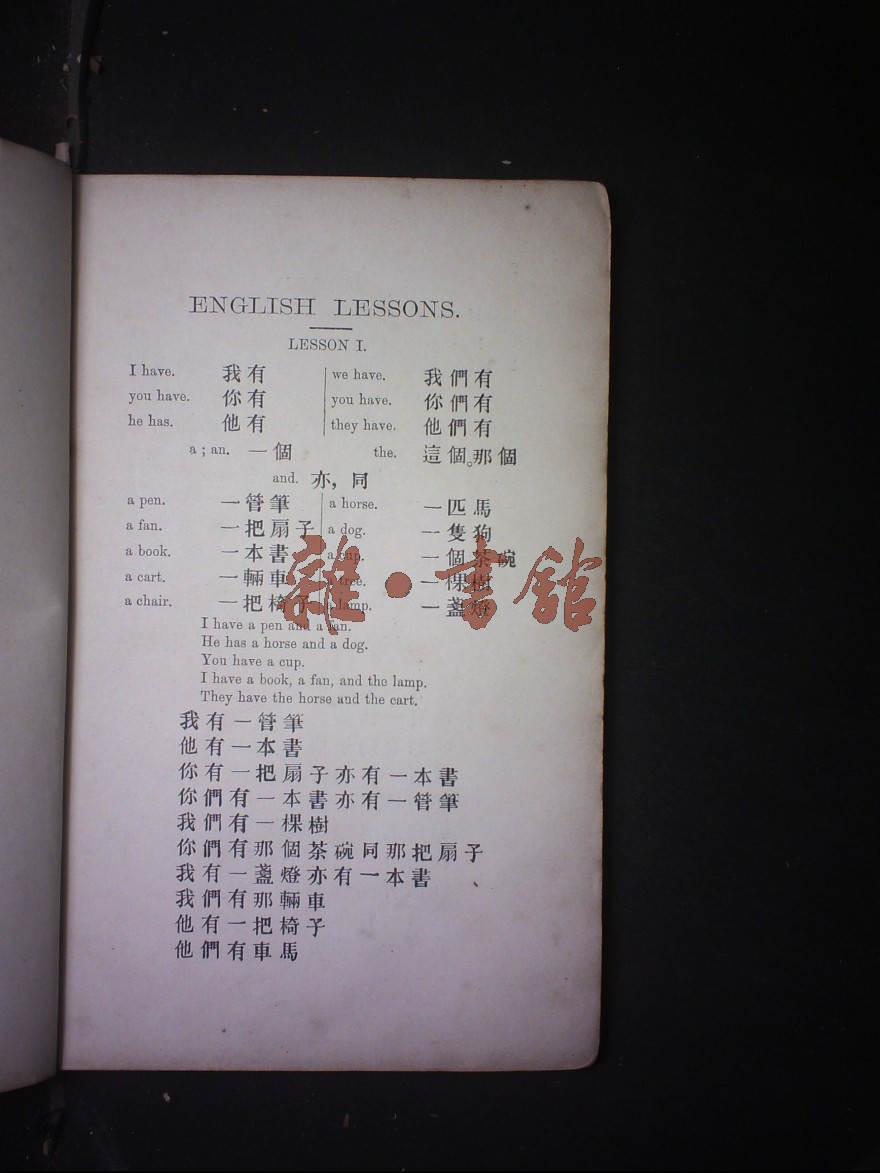 ENGLISH LESSONS.
LESSON I.
I have. 我有 we have. 我們有
you have. 你有 you have. 你們有
he has. 他有 they have. 他們有
a ; an. 一個 the. 這個。那個
and. 亦，同
a pen. 一管筆 a horse. 一匹馬
a fan. 一把扇子 a dog. 一隻狗
a book. 一本書 a cup. 一個茶碗
a cart. 一輛車 a tree. 一棵樹
a chair. 一把椅子 a lamp. 一盞燈
雜·書館
I have a pen and a fan.
He has a horse and a dog.
You have a cup.
I have a book, a fan, and the lamp.
They have the horse and the cart.
我有一管筆
他有一本書
你有一把扇子亦有一本書
你們有一本書亦有一管筆
我們有一棵樹
你們有那個茶碗同那把扇子
我有一盞燈亦有一本書
我們有那輛車
他有一把椅子
他們有車馬